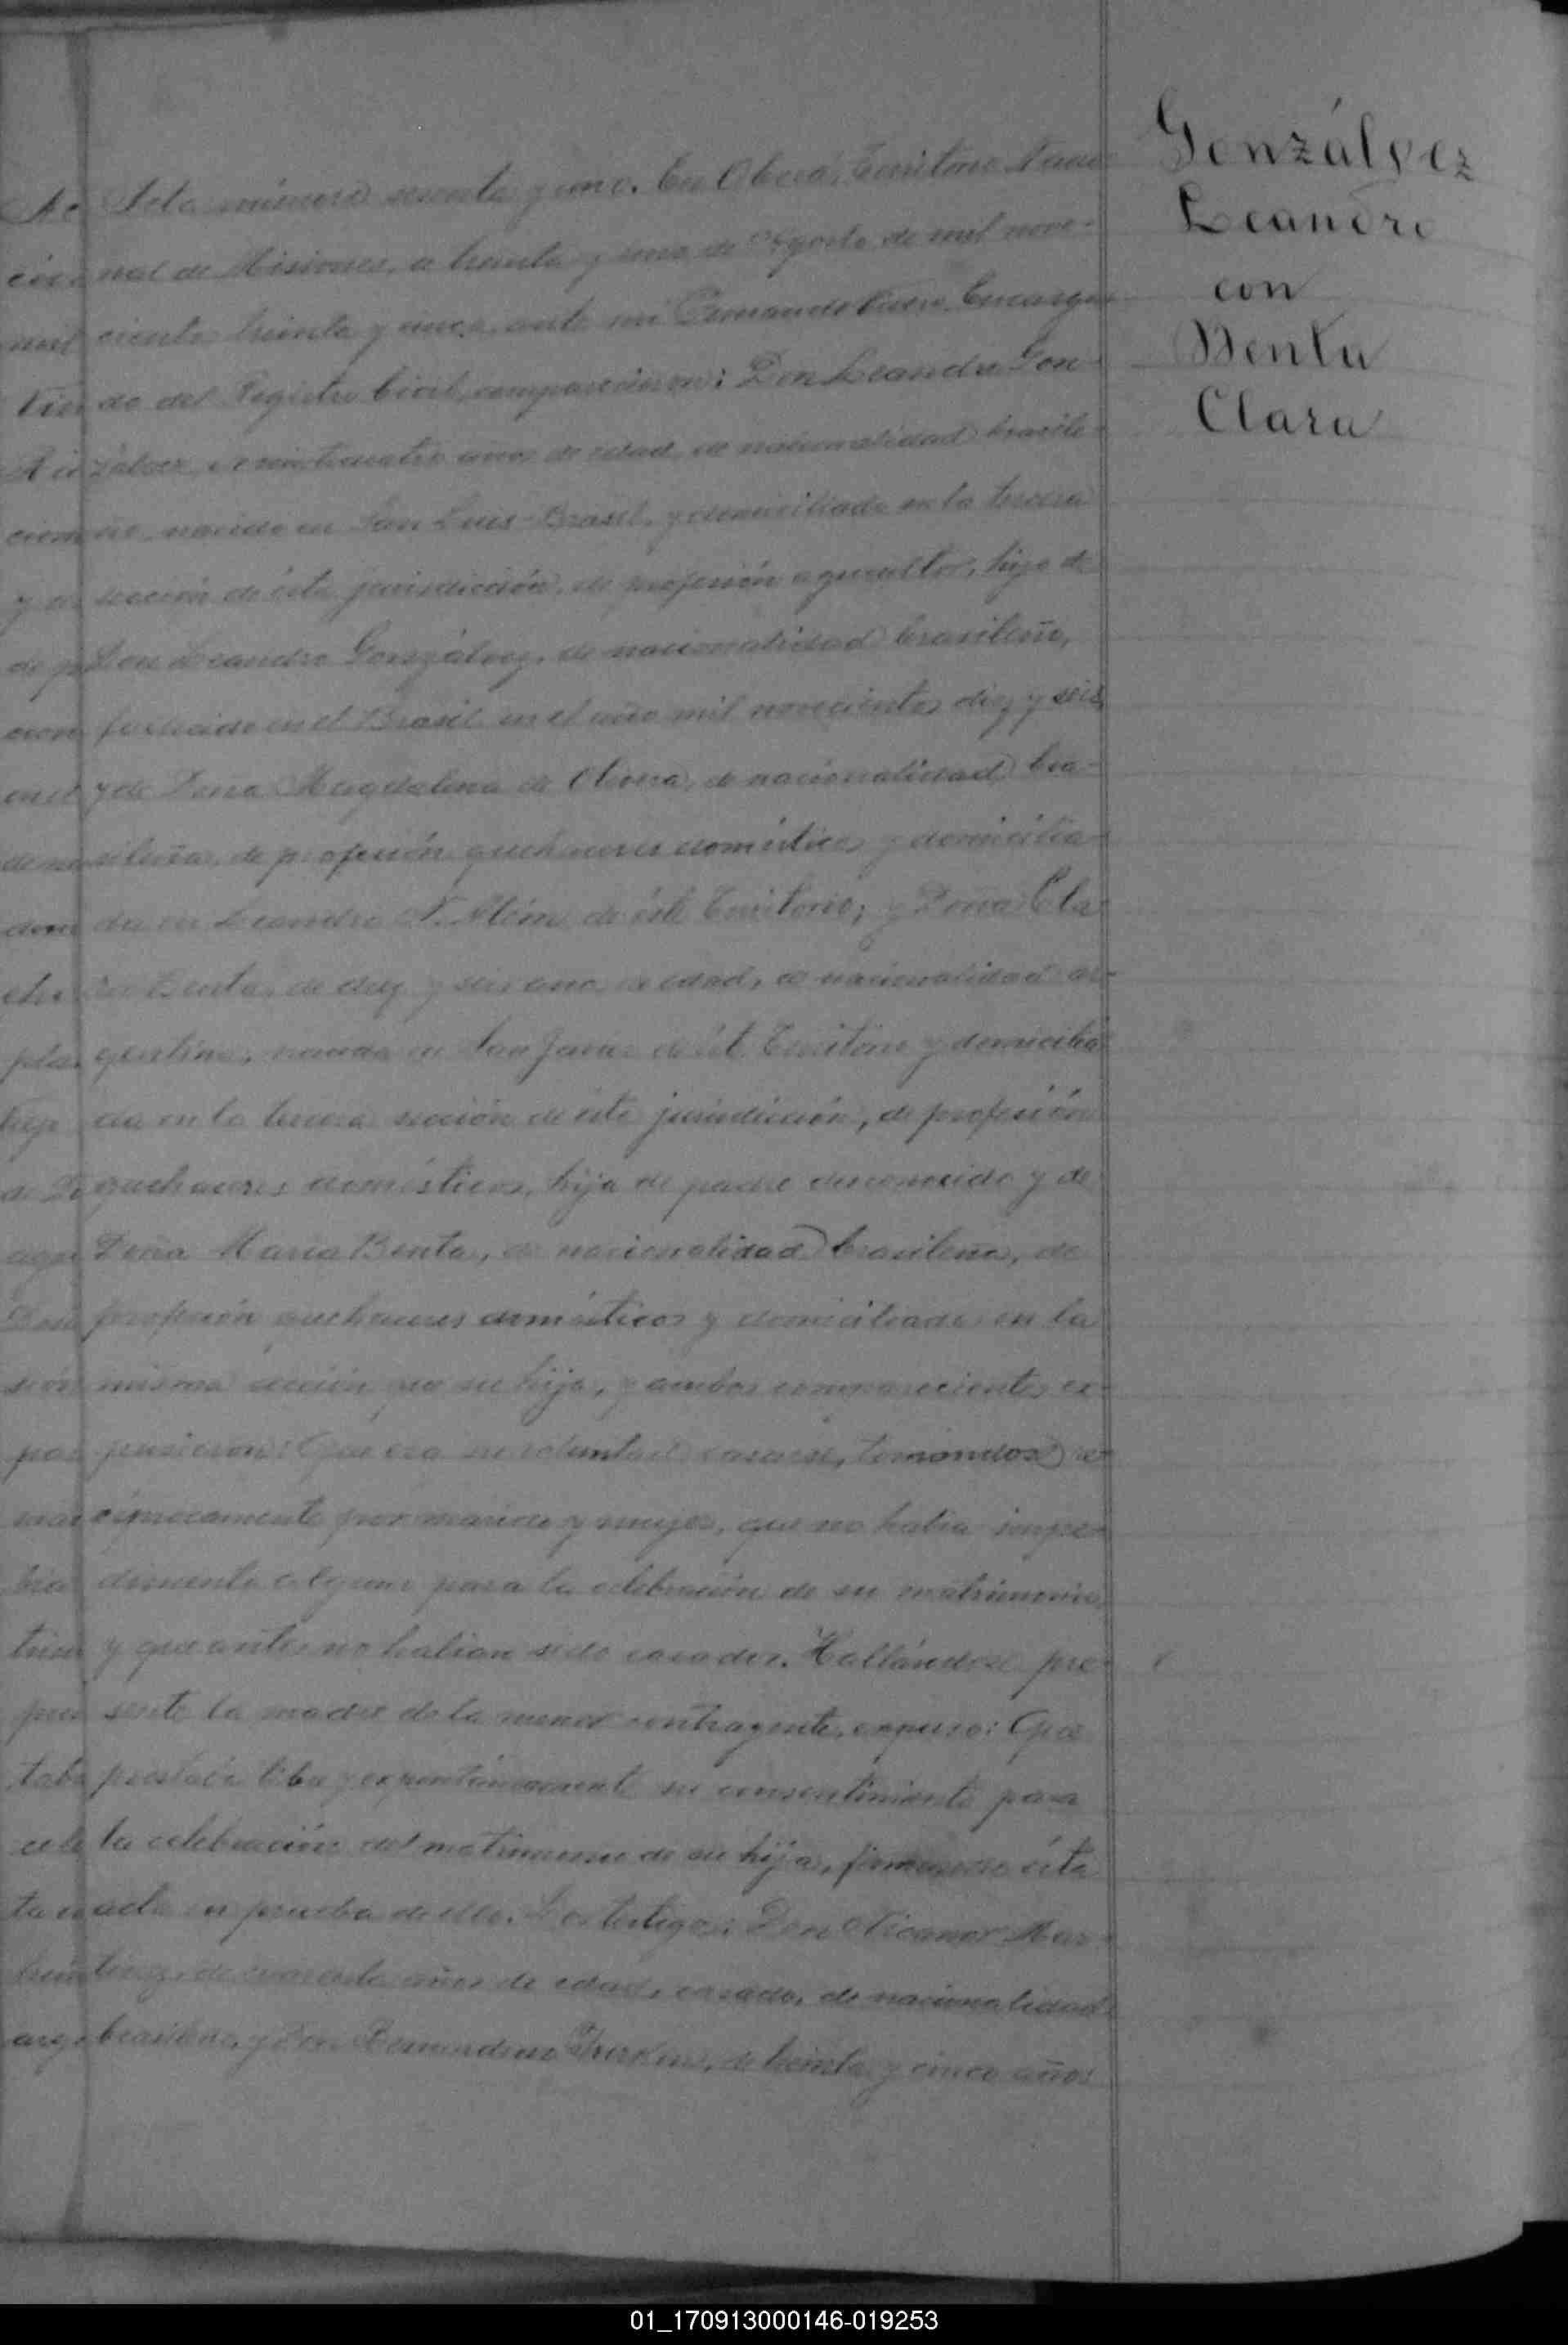 Gonzálvez
Leandro
con
Benta
Clara
Acta número sesenta y uno. En Oberá, Territorio Nacio-
nal de Misiones, a treinta y uno de Agosto de mil nove-
cientos treinta y ante mi Encarga-
do del Registro Civil, comparecieron: Don Leandro Gon-
zálvez, de veinticuatro años de edad, de nacionalidad brasile-
ño, nacido en San Luis-Brasil, y domiciliado en la tercera
sección de ésta jurisdicción, de profesión agricultor, hijo de
Don Leandro Gonzálvez, de nacionalidad brasileño,
fallecido en el Brasil en el año mil novecientos diez y seis,
y de Doña Magdalena de Olivera, de nacionalidad bra-
sileña, de profesión quehaceres domésticos y domicilia-
da en Leandro N. Além de éste Territorio; y Doña Cla-
ra Benta, de diez y seis años de edad, de nacionalidad ar-
gentina, nacida en San Javier de éste Territorio y domicilia-
da en la tercera sección de ésta jurisdicción, de profesión
quehaceres domésticos, hija de padre desconocido y de
Doña María Benta, de nacionalidad brasileña, de
profesión quehaceres domésticos y domiciliada en la
misma sección que su hija, y ambos comparecientes ex-
pusieron: Que era su voluntad casarse, tomandose re-
ciprocamente por marido y mujer, que no habia impe-
dimento alguno para la celebración de su matrimonio,
y que antes no habian sido casados. Hallándose pre-
sente la madre de la menor contrayente, expuso: Que
prestaba libre y expontáneamente su consentimiento para
la celebración del matrimonio de su hija, firmando ésta
acta en prueba de ello. Los testigos: Don Nicanor Mar-
tinez, de cuarenta años de edad, casado, de nacionalidad
brasileña, y Don de treinta y cinco años
01_170913000146-019253